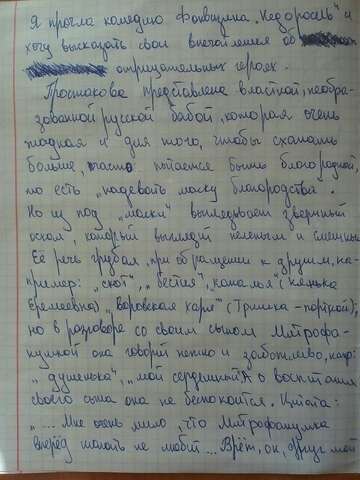 Я прочла комедию Фонвизина „Недоросль" и
хочу высказать свои впечатления об
отрицательных героях.
Простакова представлена властной, необра-
зованной русской бабой, которая очень
жадная и для того, чтобы схапать
больше, часто пытается быть благородной,
то есть „надевать маску благородства".
Но из под „маски" выглядывает зверинный
оскал, который выглядит нелепым и смешным.
Её речь грубая, при обращении к другим, на-
пример: „скот", „бестия", каналья" (нянька
Еремеевна), „воровская харя" (Тришка - портной);
но в разговоре со своим сыном Митрофа-
нушкой она говорит нежно и заботливо, напр:
„душенька", „мой сердешный". А о воспитании
своего сына она не беспокоится. Цитата:
„... Мне очень мило, что Митрофанушка
вперёд шагать не любит ... Врёт, он, друг мой